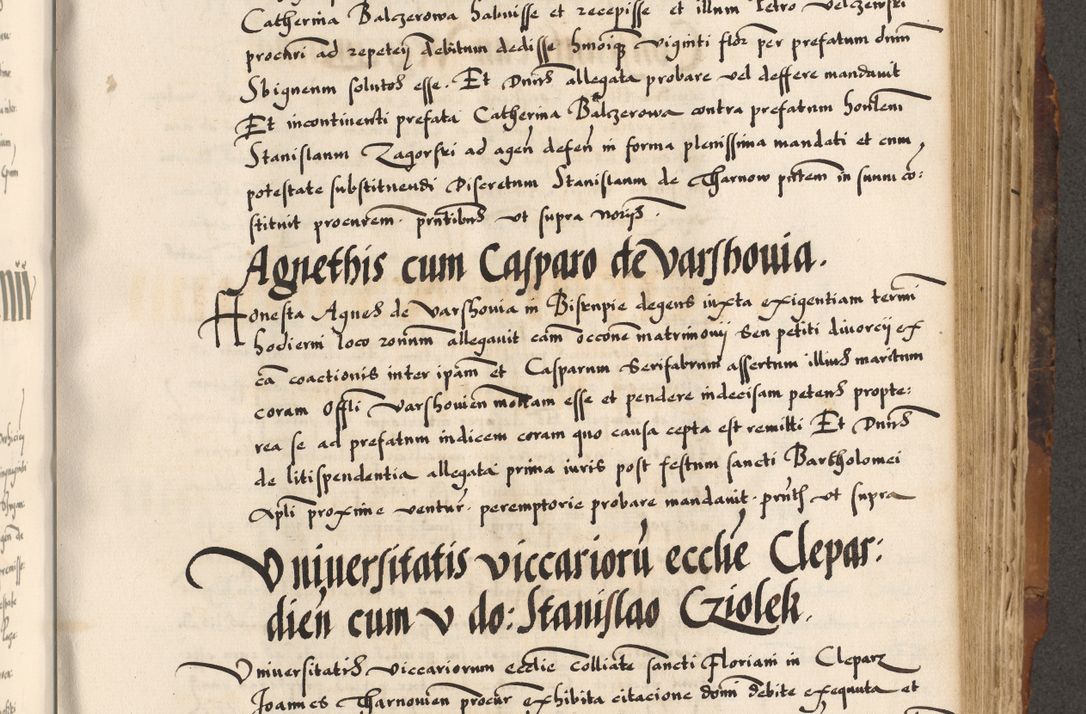 Catherina Balczerowa habuisse et recepisse et illum Petro Velczewski
procuri ad repeteń debitum dedisse hmoiq viginti flor per prefatum dnm
Sbigneum solutos esse. Et Dnus allegata probare vel deffere mandauit
Et incontinenti prefata Catherina Balczerowa contra prefatum honlem
Stanislaum Zagorski ad ageń defeń in forma plenissima mandati et cum
potestate substituendi Discretum Stanislaum de Tharnow pntem in suum co:
stituit procurem. pntibus ut supra noriis.
Agnethis cum Casparo de Varshouia.
Honesta Agnes de Varshouia in Biskupie degens iuxta exigentiam termi
hodierni loco zonum allegauit cam occone matrimonij seu petiti diuorcij ex
ca coactionis inter ipam et Casparum Serifabrum assertum illius maritum
coram Offli Varshouien motam esse et pendere indecisam petens propte:
rea se ad prefatum iudicem coram quo causa cepta est remitti Et Dnus
de litispendentia allegata prima iuris post festum sancti Bartholomei
Apli proxime ventur. peremptorie probare mandauit. pntb ut supra
Vniuersitatis viccariorú ecclie Clepar:
dień cum v do: Stanislao Cziolek.
Vniuersitatis viccariorum ecclie colliate sancti Floriani in Cleparz
Joannes Tharnouien procur exhibita citacione domi debite exequuta et